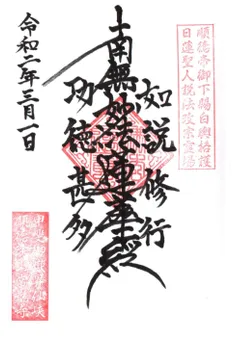 順德帝御下賜白輿格護
日蓮聖人説法改宗霊場
如説修行
南無妙法蓮華経
功徳甚多
令和二年三月一日